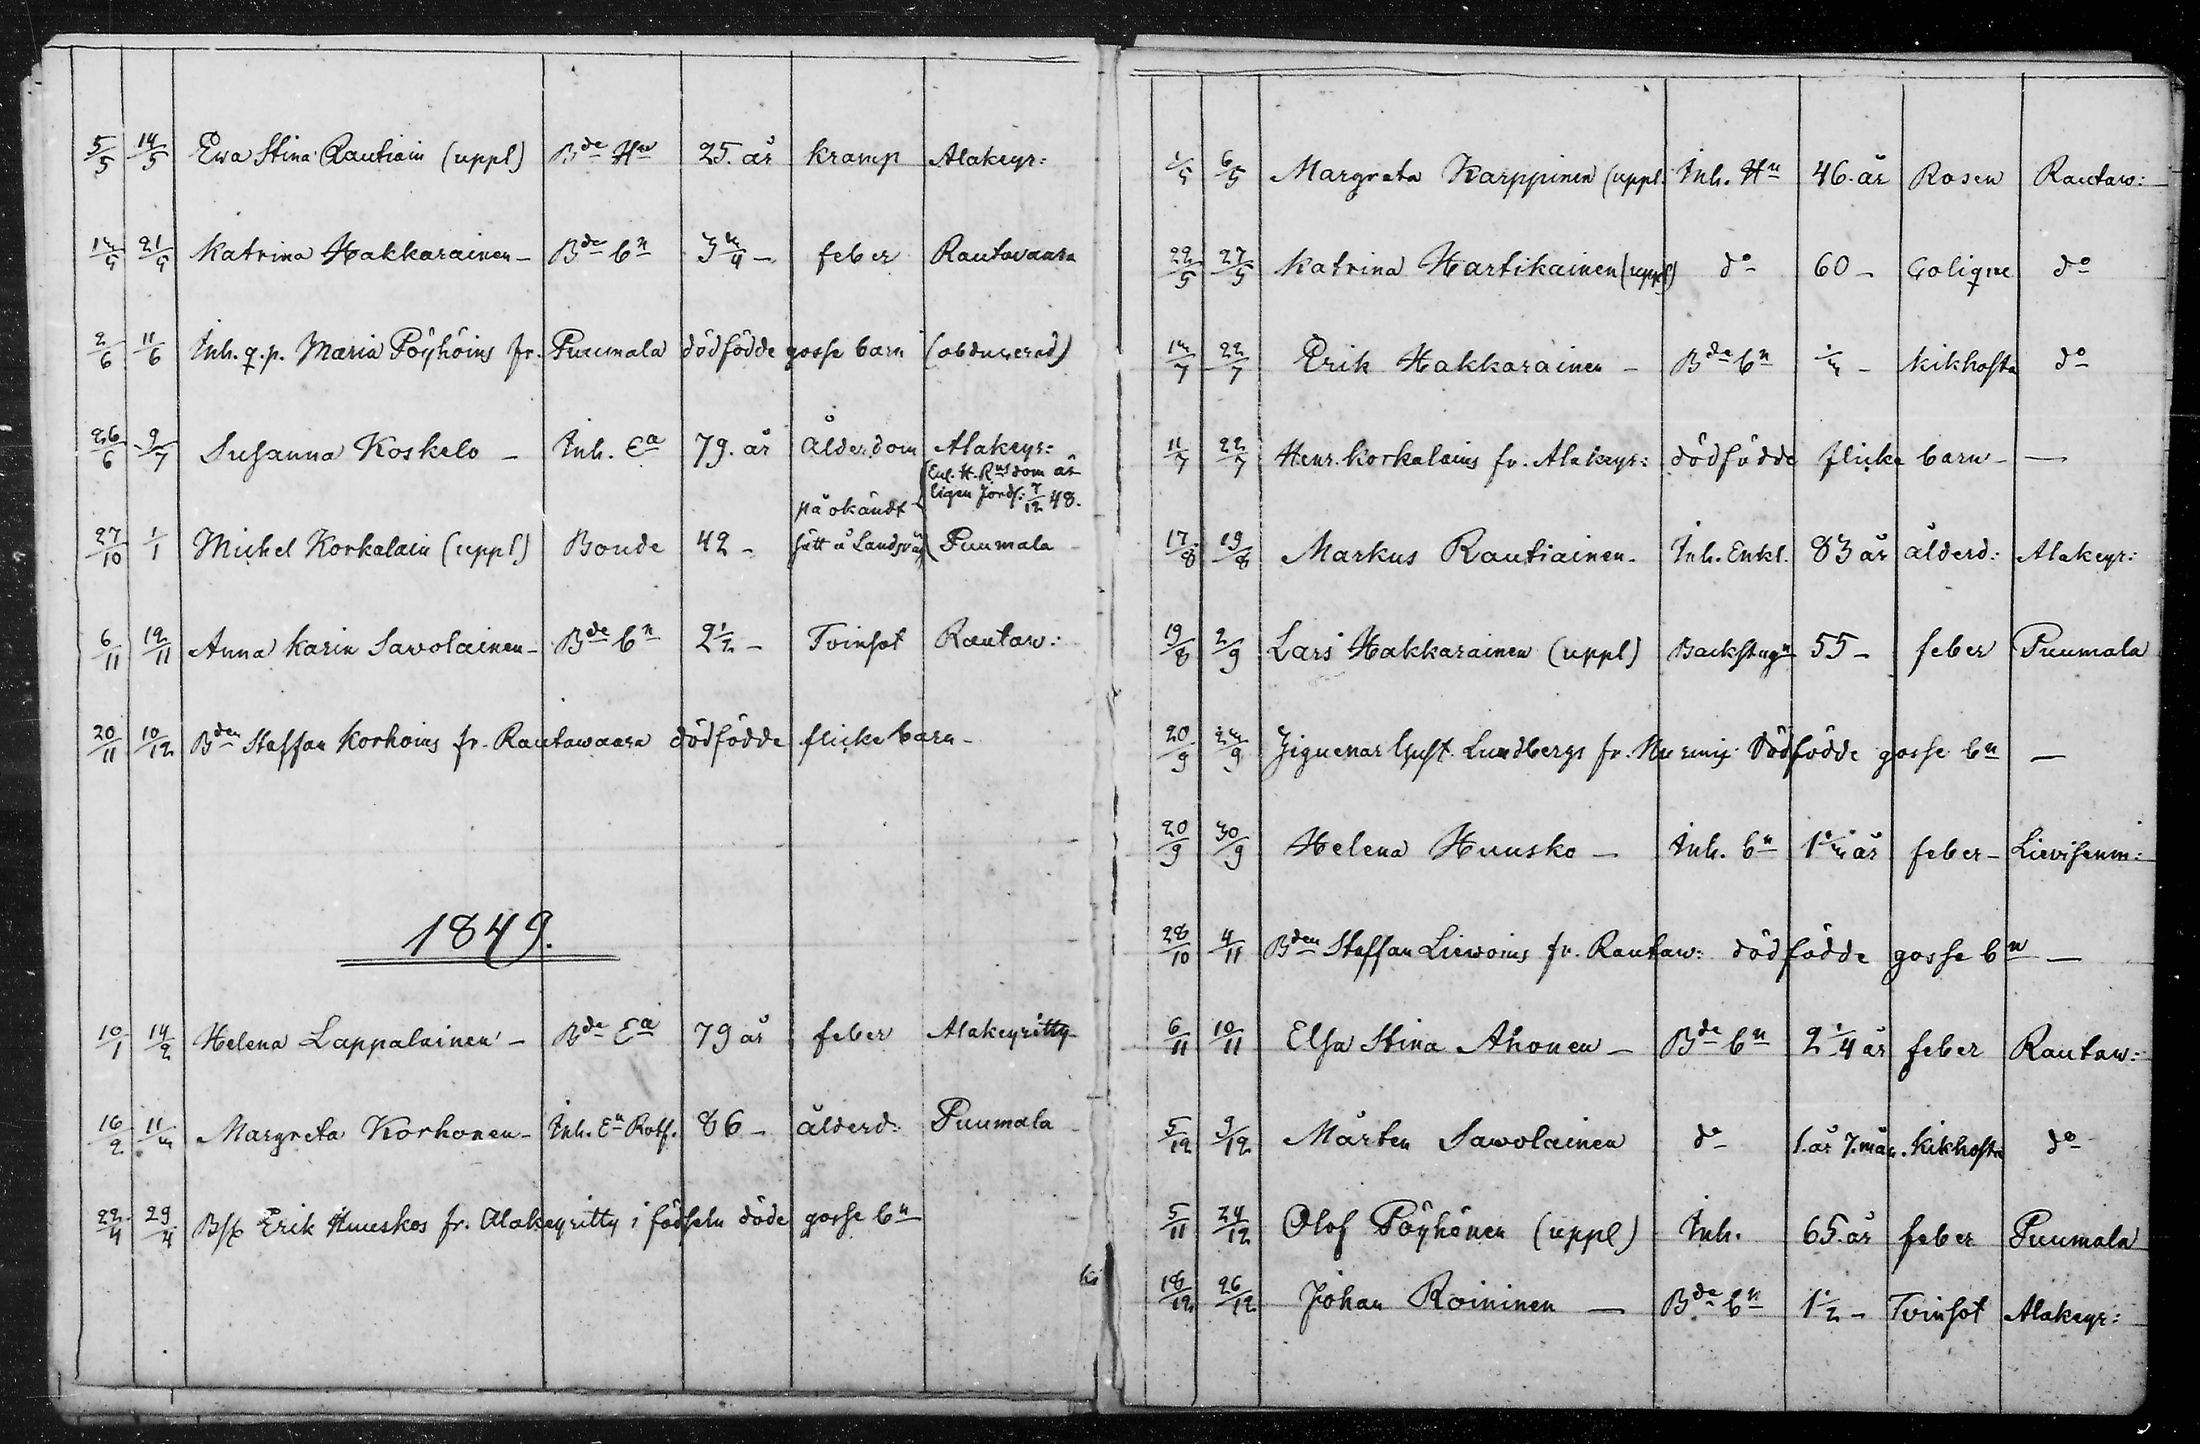 5/5 14/5 Ewa Stina Rautiain (uppl) Bde Hu 25. år kramp Alakeyr:
21/5 Katrina Hakkarainen – Bde bn 3 3/4 – feber Rautavaara
2/6 11/6 Inh. q.p. Maria Pöyhöins fr. Puumala dödfödde gosse barn (obducerad)
26/6 9/7 Susanna Koskelo – Inh. Ea 79. år Ålderdom Alakeyr:
Enl. H. Rns dom är
ligen Jordf: 7/12 48.
på okändt
27/10 1/1 Michel Korkalain (uppl) Bonde 42 – sätt å Landsväg Puumala
6/11 12/11 Anna Karin Savolainen – Bde bn 2 1/2 – Tvinsot Rautaw:
20/11 10/12 Bden Staffan Korhoins fr. Rautawaara dödfödde flicke barn –
1849.
10/1 14/2 Helena Lappalainen – Bde Ea 79 år feber Alakeyritty
16/2 11/3 Margreta Korhonen – Inh. En Rotf. 86 – ålderd: Puumala
22/4 29/4 Erik Huuskos fr. Alakeyritty i födseln döde gosse bn
1/5 6/5 Margreta Karppinen (uppl. Inh. Hu 46. år Rosen Rautaw:
22/5 27/5 Katrina Hartikainen (uppl) do 60 – Colique do
13/7 22/7 Erik Hakkarainen – Bde bn 1/3 – kikhosta do
11/7 22/7 Henr. Korkalains fr. Alakeyr: dödfödde flicke barn – —
17/8 19/8 Markus Rautiainen – Inh. Enkl. 83 år ålderd: Alakeyr:
19/8 2/9 Lars Hakkarainen (uppl) Backstugu 55 – feber Puumala
20/9 23/9 Ziguenar Gust. Lundbergs fr. Nurmis dödfödde gosse bn —
20/9 30/9 Helena Huusko – Inh. bn 1 1/3 år feber – Lievisenm:
28/10 4/11 Bden Staffan Liewoins fr. Rautaw: dödfödde gosse bn —
6/11 10/11 Elsa Stina Ahonen – Bde bn 2 1/4 år feber Rautaw:
5/12 9/12 Mårten Sawolainen do 1. år 7. mån. kikhosta do
5/11 24/12 Olof Pöyhönen (uppl) Inh. 65. år feber Puumala
18/12 26/12 Johan Roininen — Bde bn 1 1/2 – Tvinsot Alakeyr: